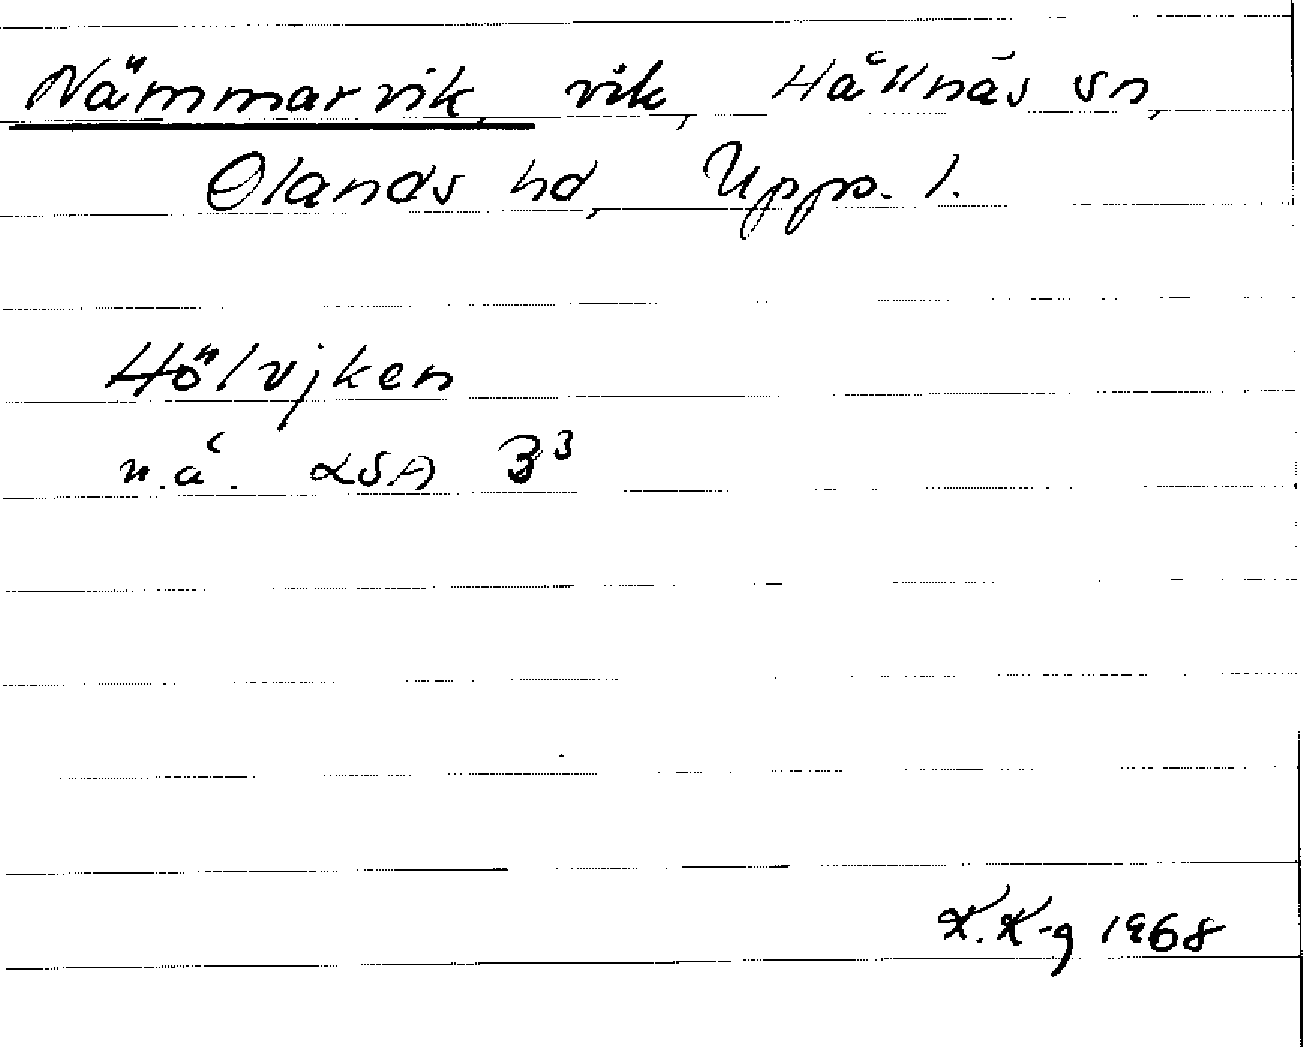 Nämmarvik, vik, Häknäs sn,
Olands hd, Upps. l.
Hölvjken
n.ä. LSA B³
K. K-g 1968